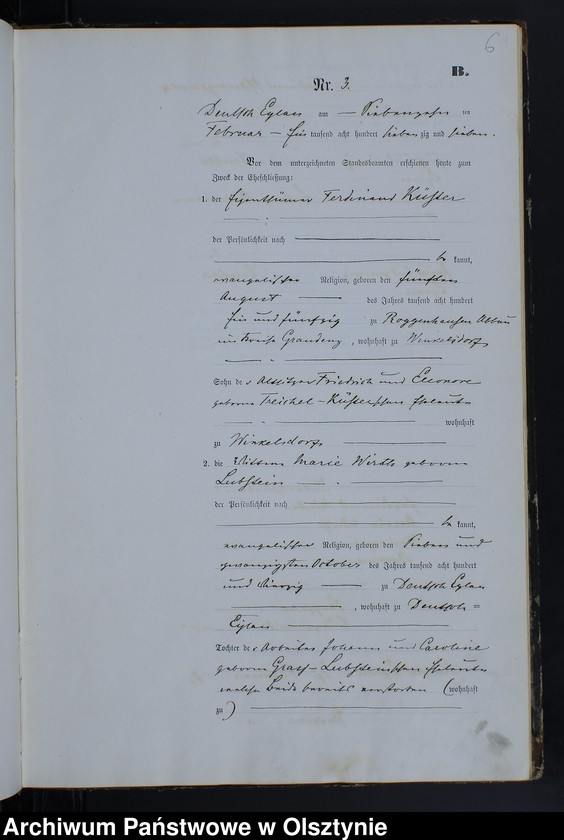 6
B.
Nr. 3.
Deutsch Eylau am — Siebenzehnten
Februar — Ein tausend acht hundert siebenzig und sieben.
Vor dem unterzeichneten Standesbeamten erschienen heute zum
Zweck der Eheschließung:
1. der Eigenthümer Ferdinand Küster
der Persönlichkeit nach
be kannt,
evangelischer Religion, geboren den fünften
August — des Jahres tausend acht hundert
ein und fünfzig zu Roggenhausen Abbau
im Kreise Graudenz, wohnhaft zu Winkelsdorf
Sohn des Altsitzer Friedrich und Eleonore
geborene Treichel-Küster'schen Eheleute
wohnhaft
zu Winkelsdorf
2. die Wittwe Marie Wirth geborene
Lubstein
der Persönlichkeit nach
be kannt,
evangelischer Religion, geboren den sieben und
zwanzigsten October des Jahres tausend acht hundert
und vierzig zu Deutsch Eylau
, wohnhaft zu Deutsch=
Eylau
Tochter des Arbeiter Johann und Caroline
geborene Lubstein'schen Eheleute
welche Beide bereits verstorben (wohnhaft
zu)
Archiwum Państwowe w Olsztynie